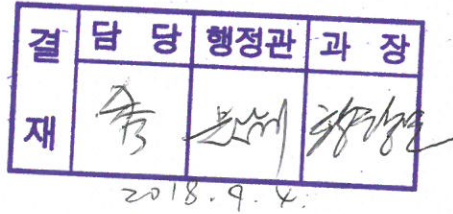 결재 담당 행정관 과장
2018. 9. 4.